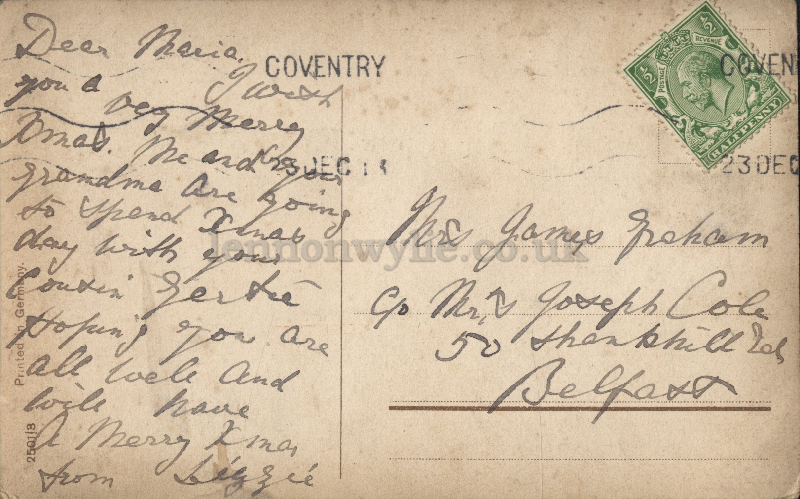 Dear Maria,
I wish
you a
very Merry
Xmas. Me and your
grandma are going
to spend Xmas
day with your
Cousin Gertie
Hoping you are
all well and
will have
A Merry Xmas
from Lizzie
COVENTRY
23 DEC 1
COVEN
23 DEC
POSTAGE
REVENUE
½
½
HALFPENNY
Mrs James Greham
c/o Mrs Joseph Cole
50 Shankhill Rd
Belfast
Printed in Germany.
2501/8
lennonwylie.co.uk